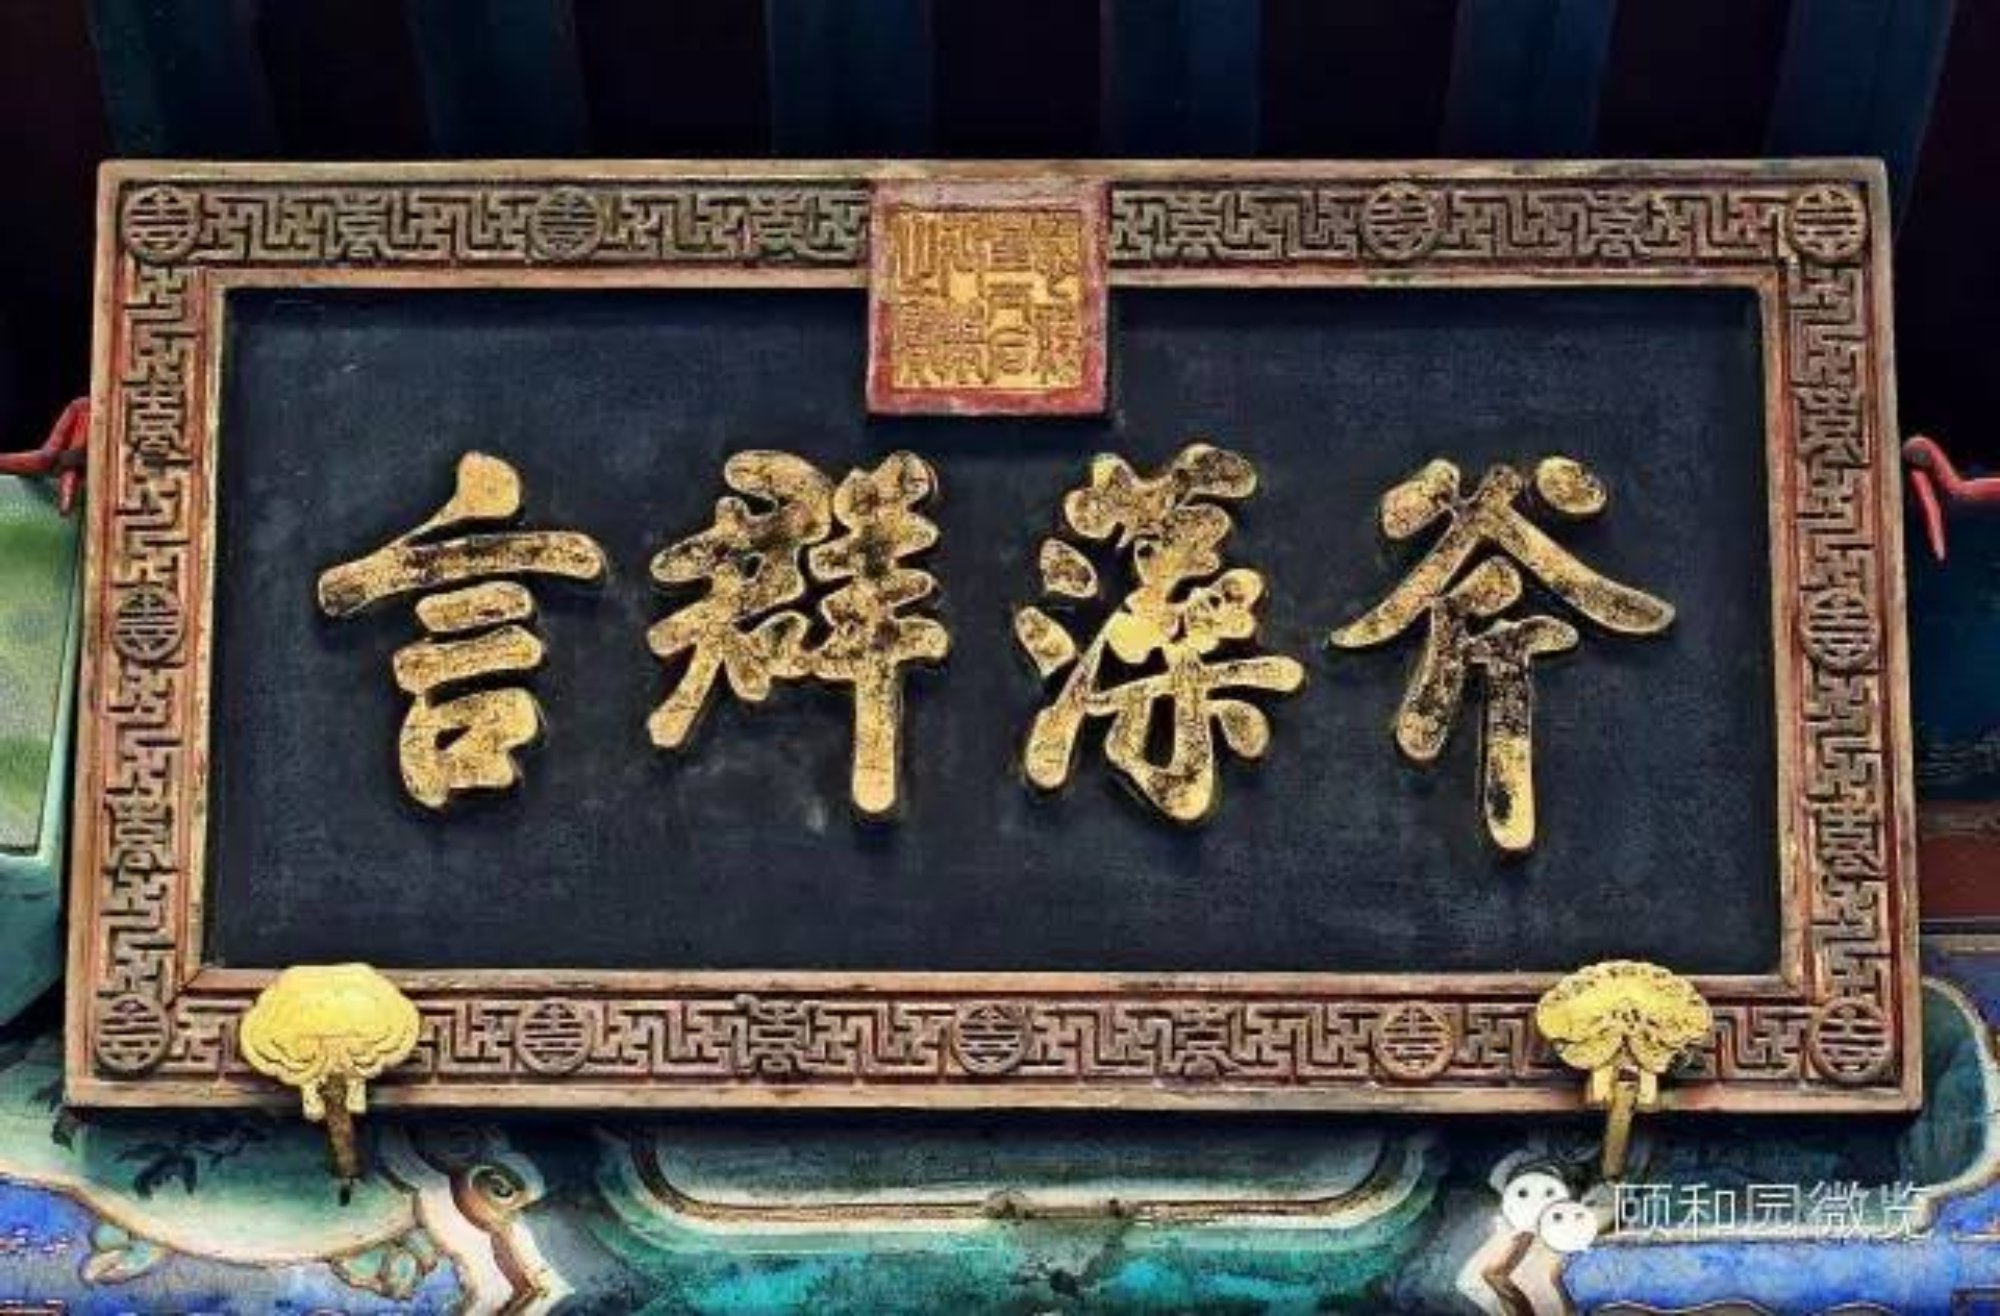 斧藻群言
颐和园微览